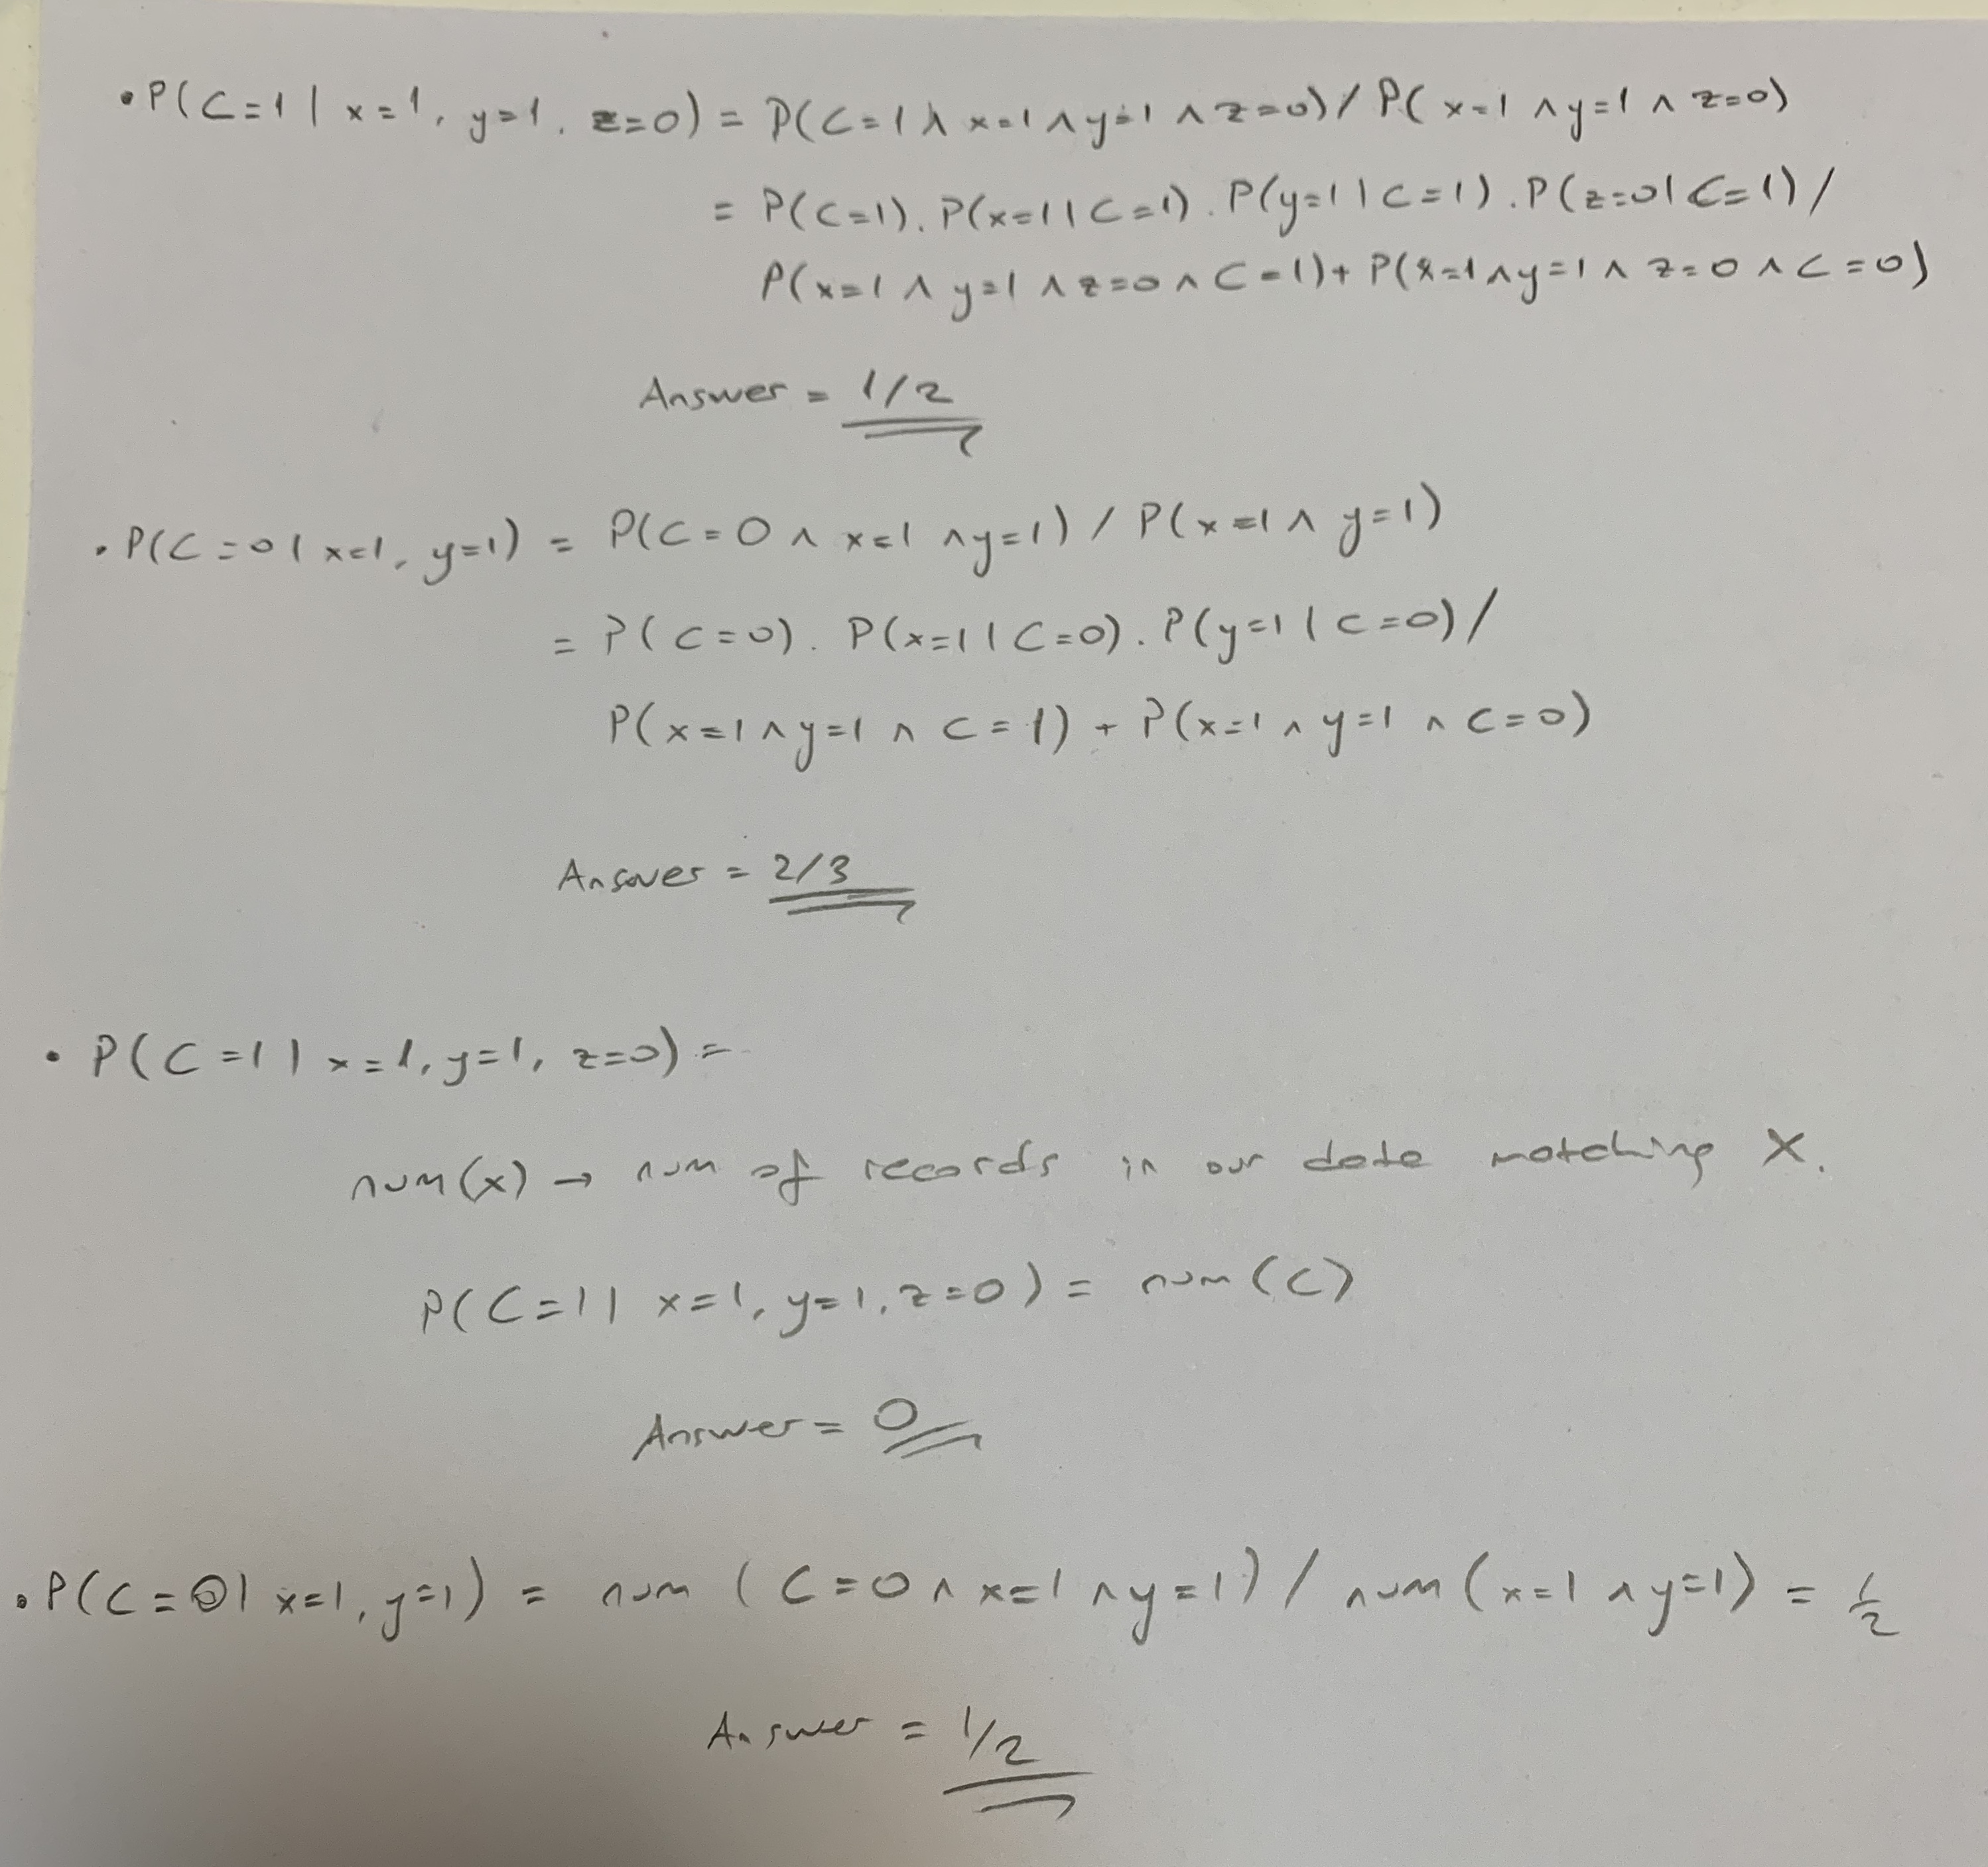 • P(C=1 | x=1, y=1, z=0) = P(C=1 ∧ x=1 ∧ y=1 ∧ z=0) / P(x=1 ∧ y=1 ∧ z=0)
= P(C=1) . P(x=1 | C=1) . P(y=1 | C=1) . P(z=0 | C=1) /
P(x=1 ∧ y=1 ∧ z=0 ∧ C=1) + P(x=1 ∧ y=1 ∧ z=0 ∧ C=0)
Answer = 1/2
• P(C=0 | x=1, y=1) = P(C=0 ∧ x=1 ∧ y=1) / P(x=1 ∧ y=1)
= P(C=0) . P(x=1 | C=0) . P(y=1 | C=0) /
P(x=1 ∧ y=1 ∧ C=1) + P(x=1 ∧ y=1 ∧ C=0)
Answer = 2/3
• P(C=1 | x=1, y=1, z=0) =
num(x) → num of records in our data matching X.
P(C=1 | x=1, y=1, z=0) = num(C)
Answer = 0
• P(C=0 | x=1, y=1) = num (C=0 ∧ x=1 ∧ y=1) / num (x=1 ∧ y=1) = 1/2
Answer = 1/2